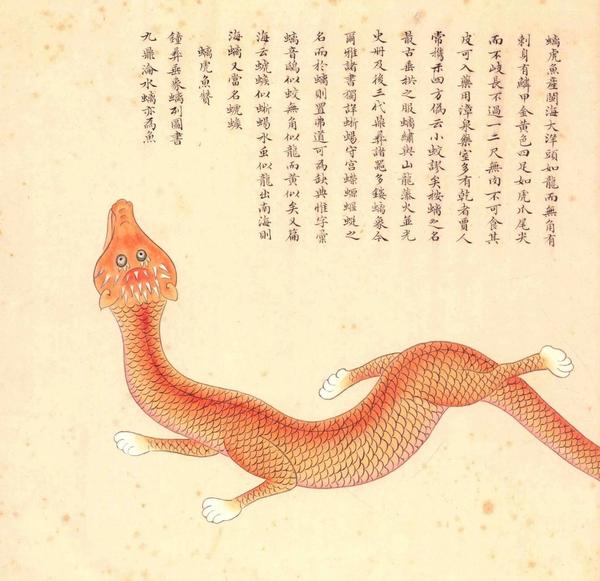 螭虎魚產閩海大洋頭如龍而無角有
刺身有鱗甲金黃色四足如虎爪尾尖
而不岐長不過一二尺無肉不可食其
皮可入藥用漳泉藥室多有乾者賈人
常攜示四方偽云小蛟謬矣按螭之名
最古垂拱之服螭繡與山龍藻火並光
史冊及後三代鼎彝諸器多鏤螭象今
爾雅諸書獨詳蜥蜴守宮蠑螈蝘蜓之
名而於螭則置弗道可為缺典惟字彙
螭音鴟似蛟無角似龍而黃似矣又篇
海云螔似蜥蜴水虫似龍出南海則
海螭又當名螔
螭虎魚贊
鐘彝垂象螭列圖書
九鼎淪水螭亦為魚